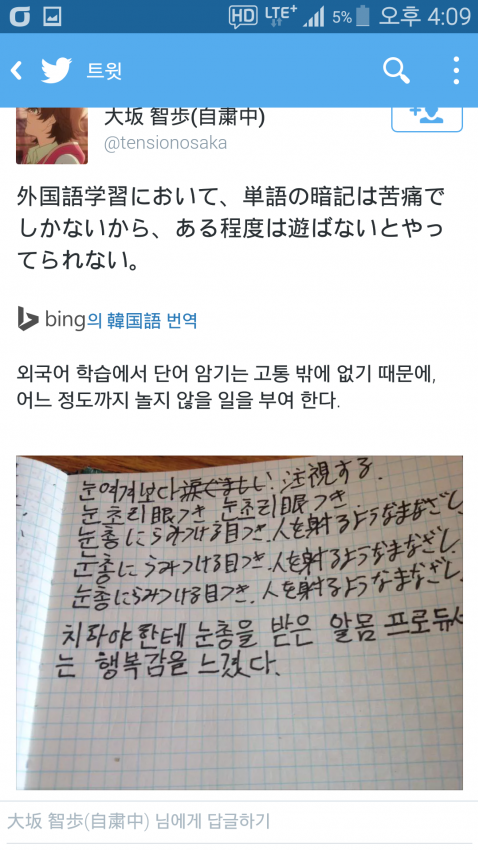 HD LTE+ 5% 오후 4:09
트윗
大坂 智歩(自粛中)
@tensionosaka
外国語学習において、単語の暗記は苦痛で
しかないから、ある程度は遊ばないとやっ
てられない。
bing의 韓国語 번역
외국어 학습에서 단어 암기는 고통 밖에 없기 때문에,
어느 정도까지 놀지 않을 일을 부여 한다.
눈여겨보다 涙ぐましい: 注視する.
눈초리 眼つき 눈초리 眼つき
눈총 にらみつける目つき. 人を射るようなまなざし
눈총 にらみつける目つき. 人を射るようなまなざし.
눈총 にらみつける目つき. 人を射るようなまなざし
치하야한테 눈총을 받은 알몸 프로듀서
는 행복감을 느꼈다.
大坂 智歩(自粛中) 님에게 답글하기